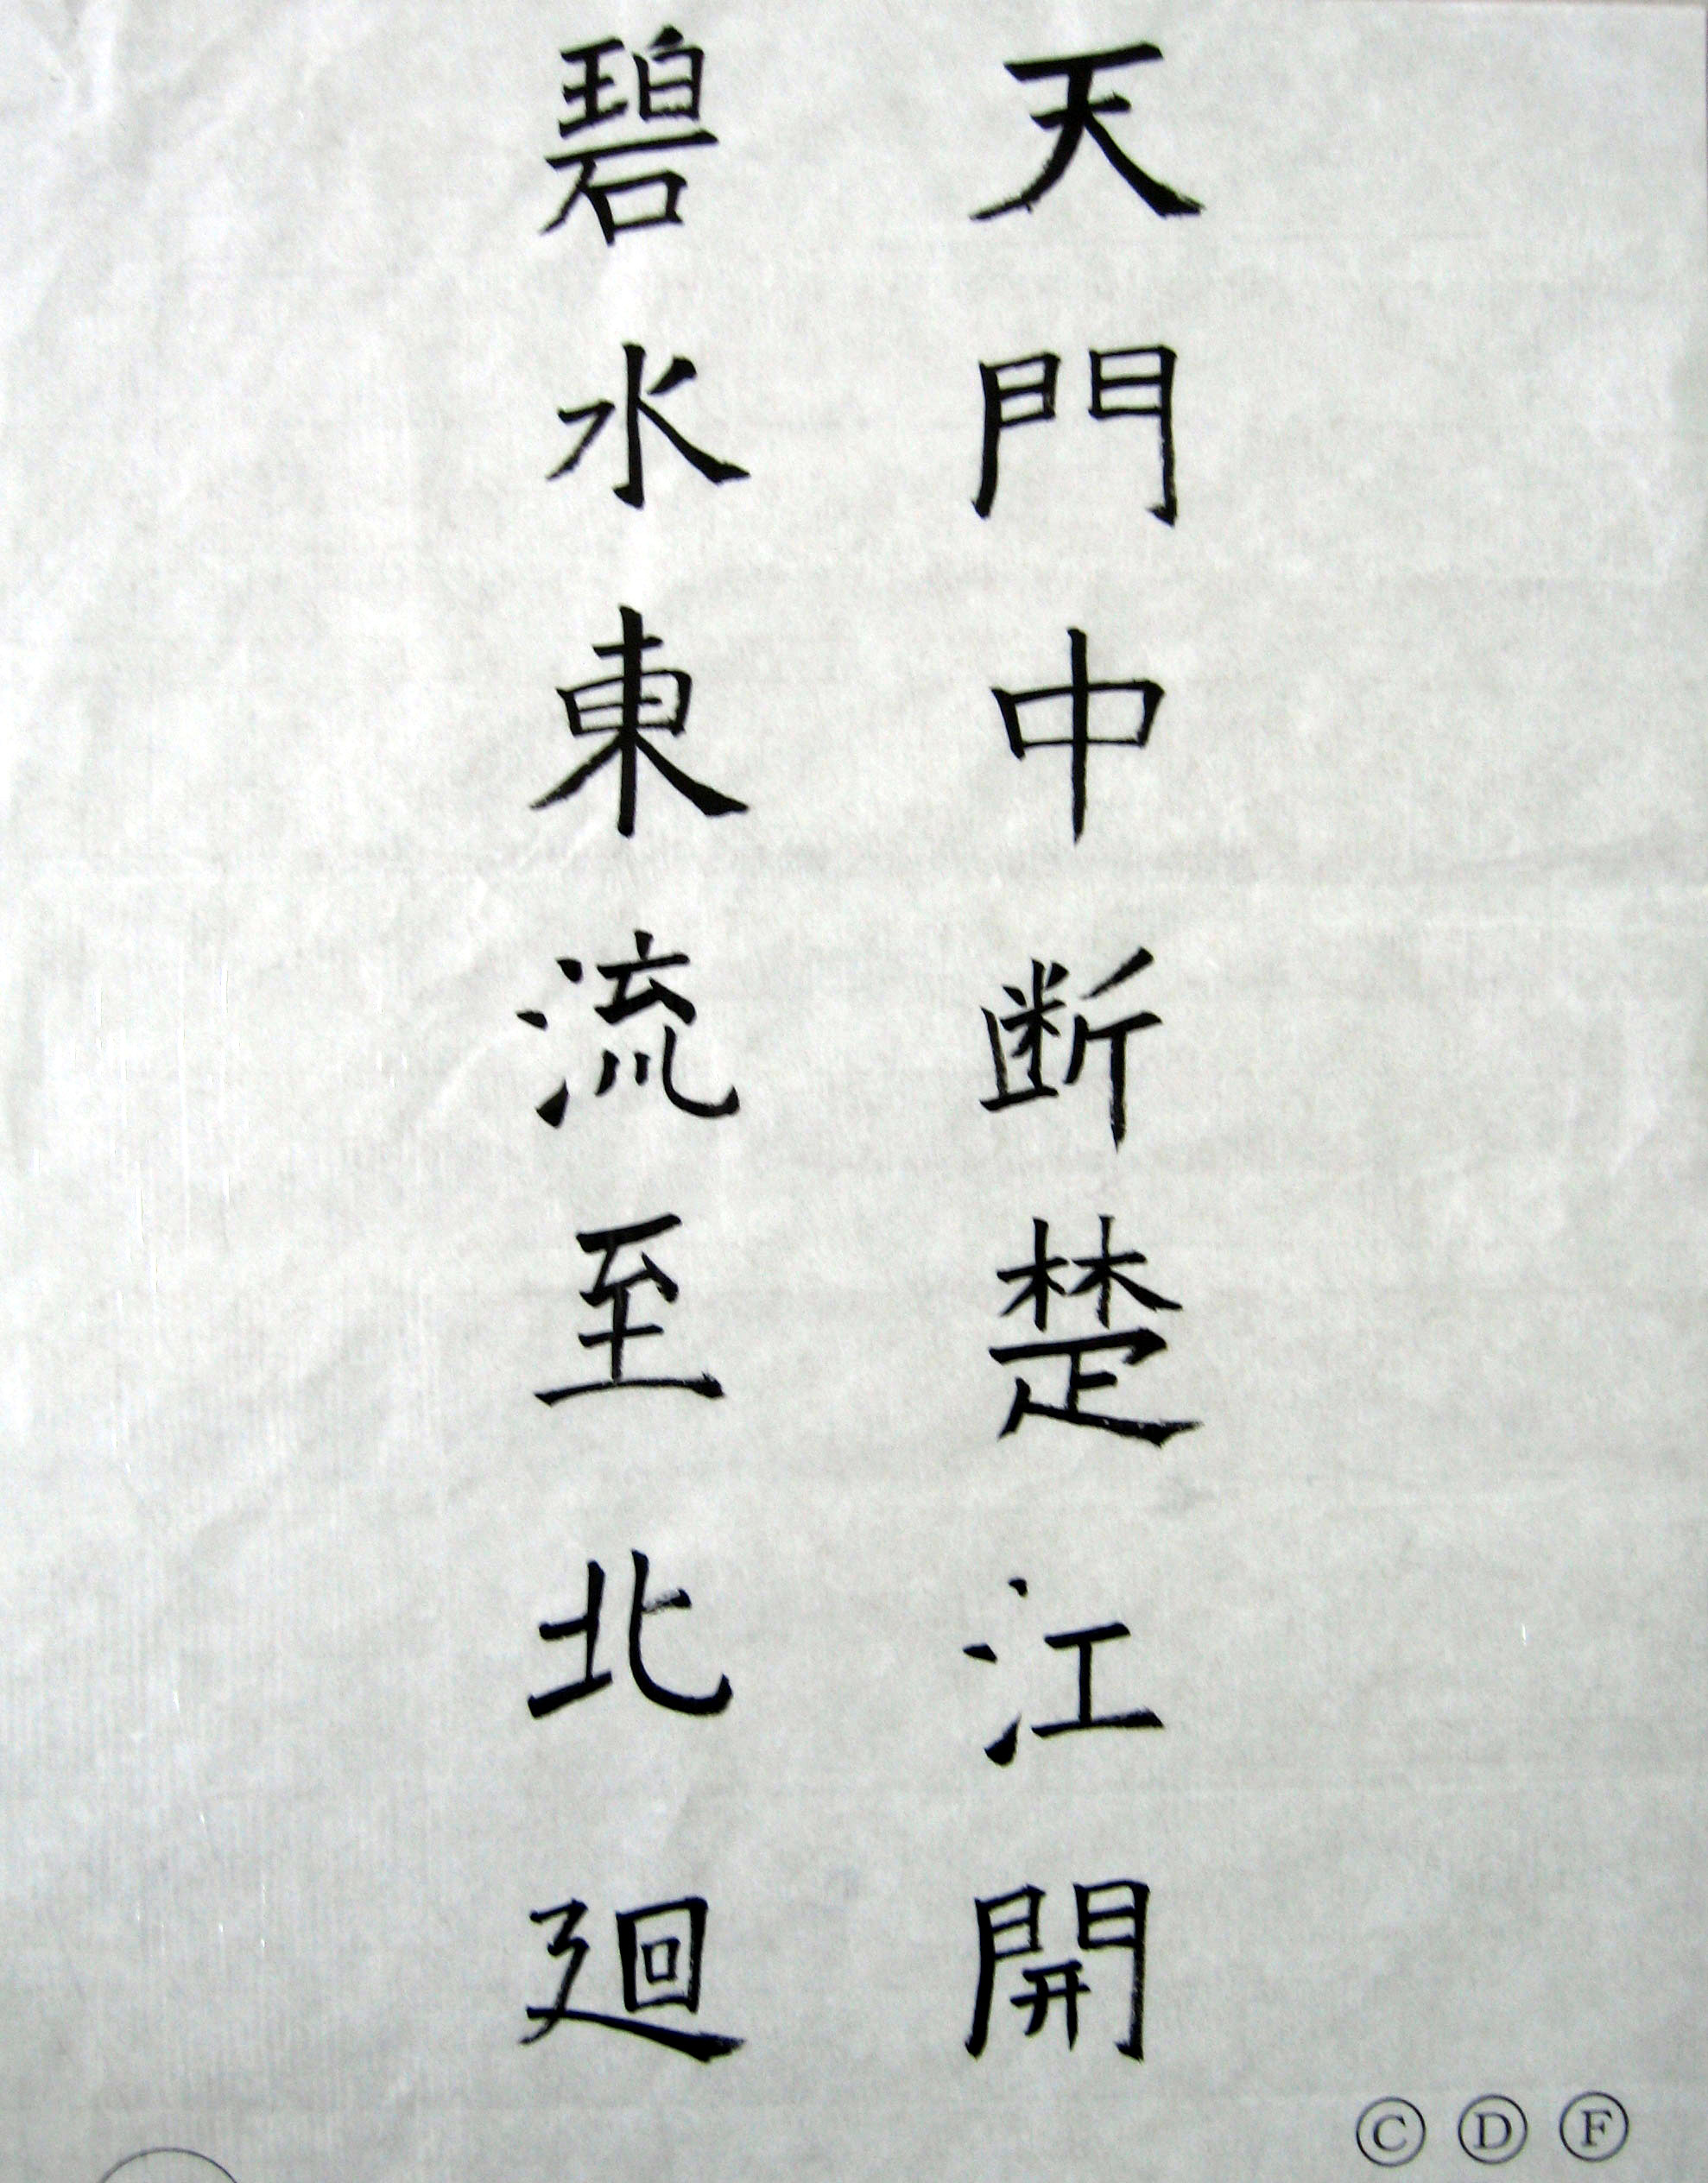 天門中断楚江開
碧水東流至北廻
Ⓒ Ⓓ Ⓕ